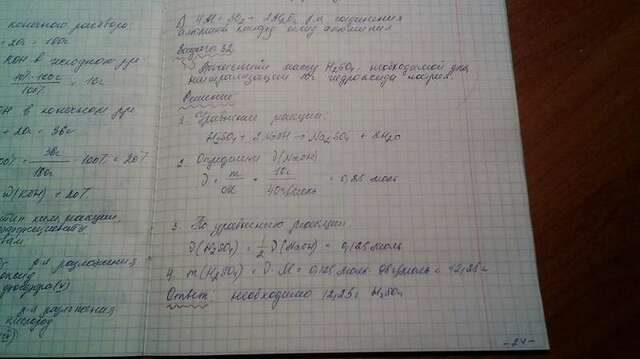 конечного раствора
+ 20г = 180г
KOH в исходном р-ре
= 10г
KOH в конечном р-ре
+ 20г = 36г
36г
180г
· 100% = 20%
W(KOH) = 20%
р-я разложения
р-я разложения
кислород
4Al + 3O2 = 2Al2O3 р-я соединения
алюминий кислород оксид алюминия
Задача 32
Вычислить массу H2SO4, необходимой для
нейтрализации 10г гидроксида натрия.
Решение
1. Уравнение реакции:
H2SO4 + 2NaOH → Na2SO4 + 2H2O
2. Определяем ν(NaOH)
ν = m/M = 10г / 40г/моль = 0,25 моль
3. По уравнению реакции:
ν(H2SO4) = 1/2 ν(NaOH) = 0,125 моль
4. m(H2SO4) = ν · M = 0,125 моль · 98г/моль = 12,25г
Ответ: необходимо 12,25г H2SO4
- 24 -